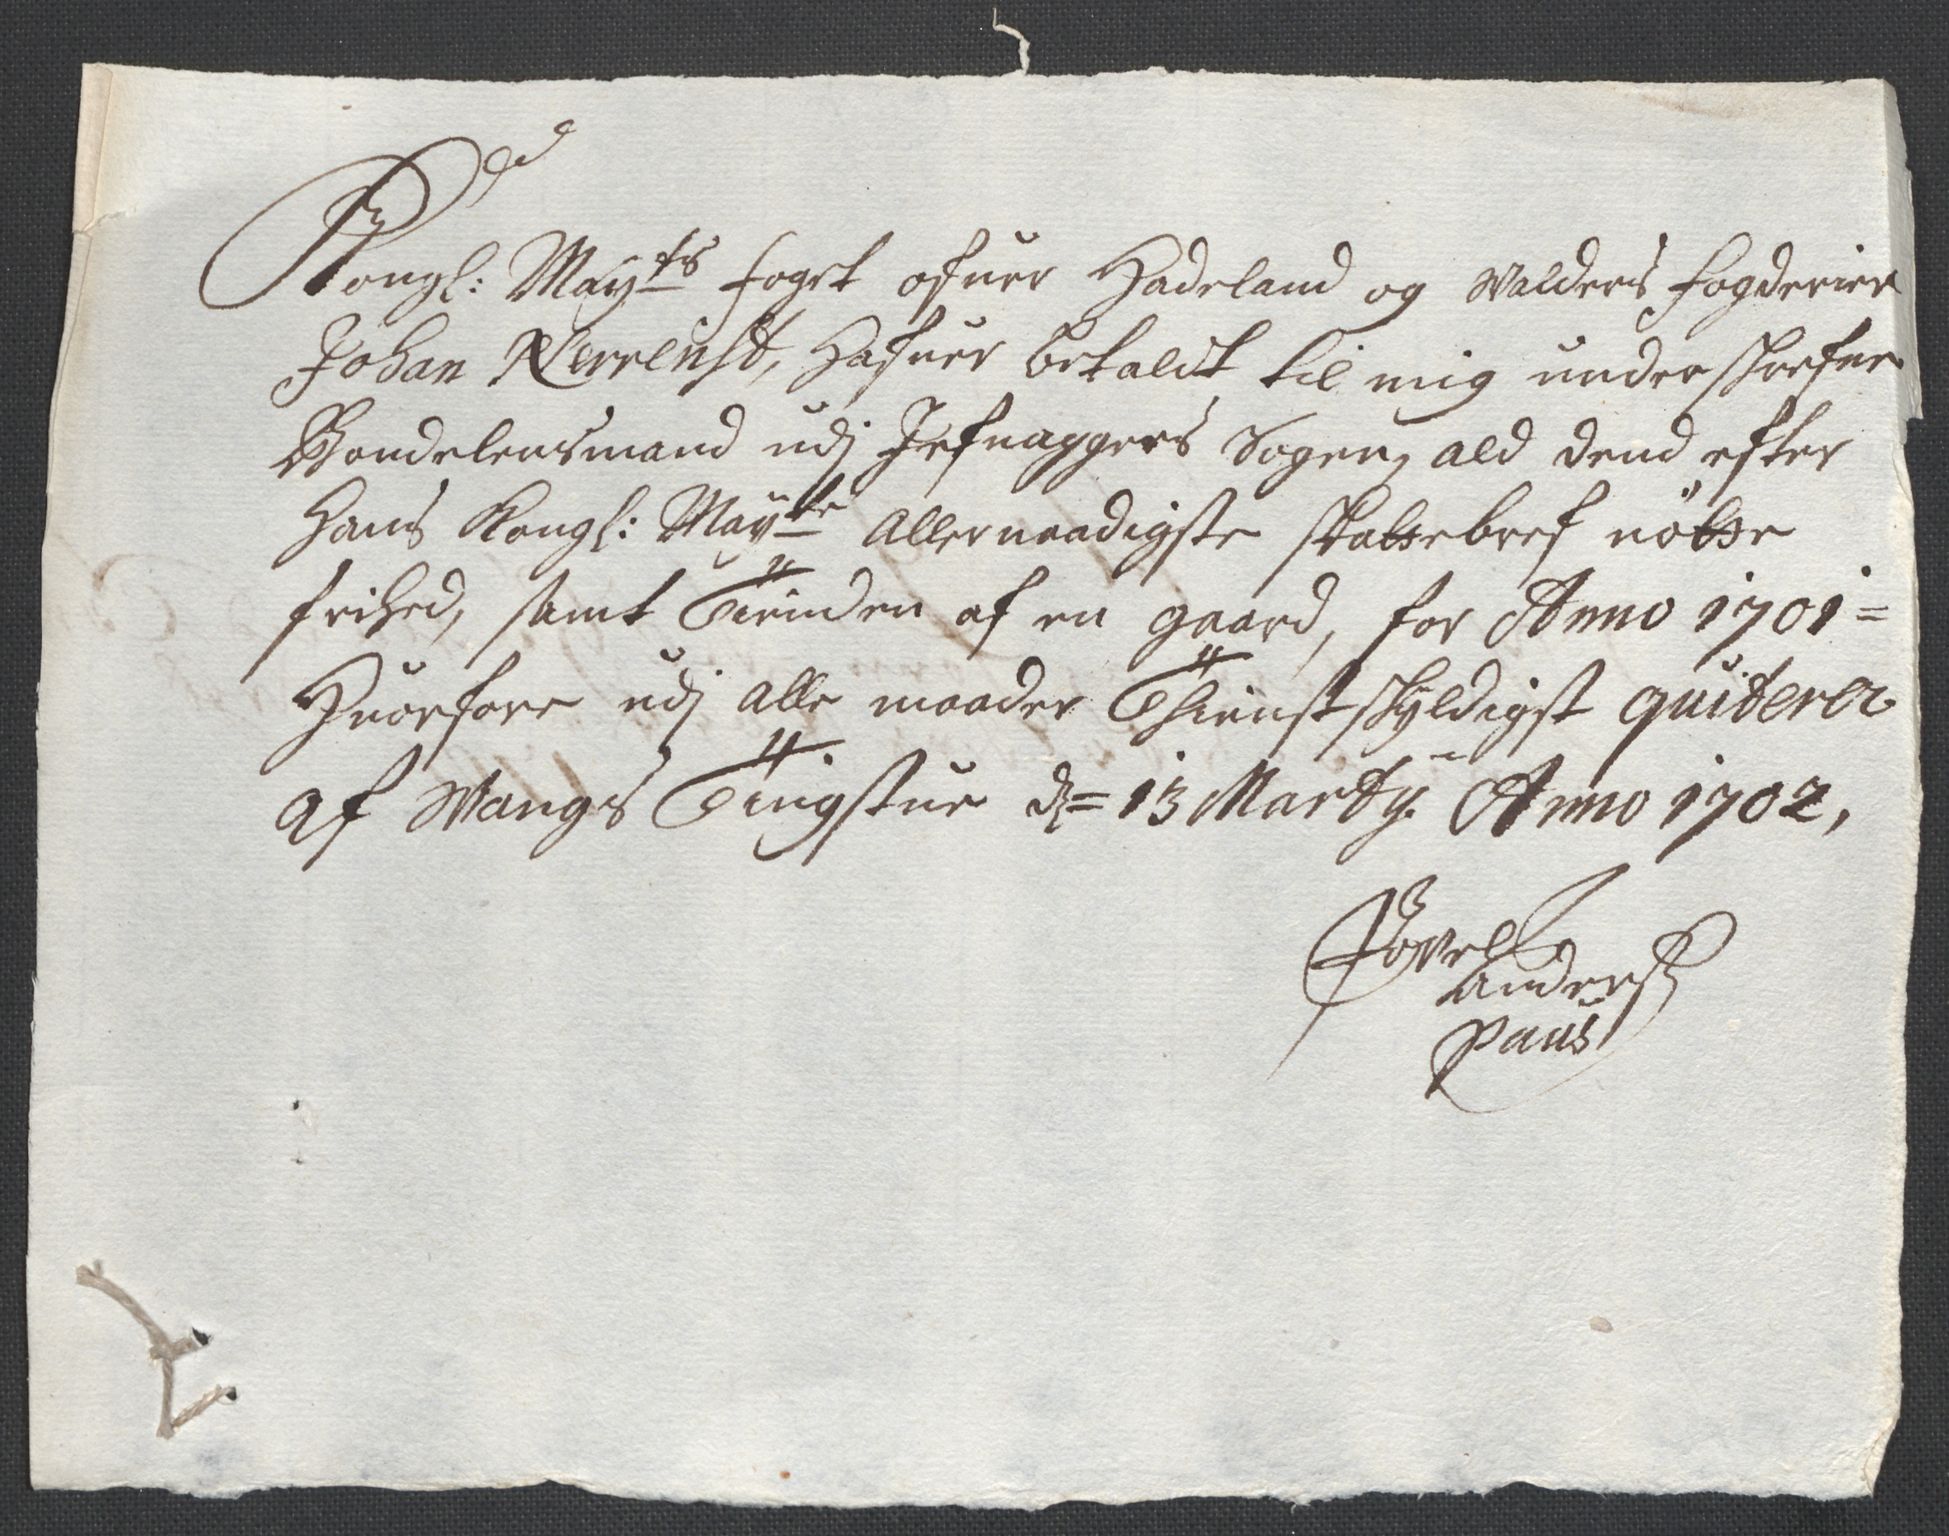 Kongl: May:ts fogt ofuer Hadeland og Walders fogderier
Johan Rerrenst, Hafuer betaldt til mig underskrefne
Bondelensmand udj Jefnaggers Sogen, ald dend efter
Hans Kongl: May:ts Allernaadigste skatsebref nötse
frihed, samt Tienden af en gaard, for Anno 1701=
Huorfore udj alle maader Thienstskÿldigst quiterer
af Wangs Tingstue d= 13 Martÿ Anno 1702,
Povel
Anders
Paus